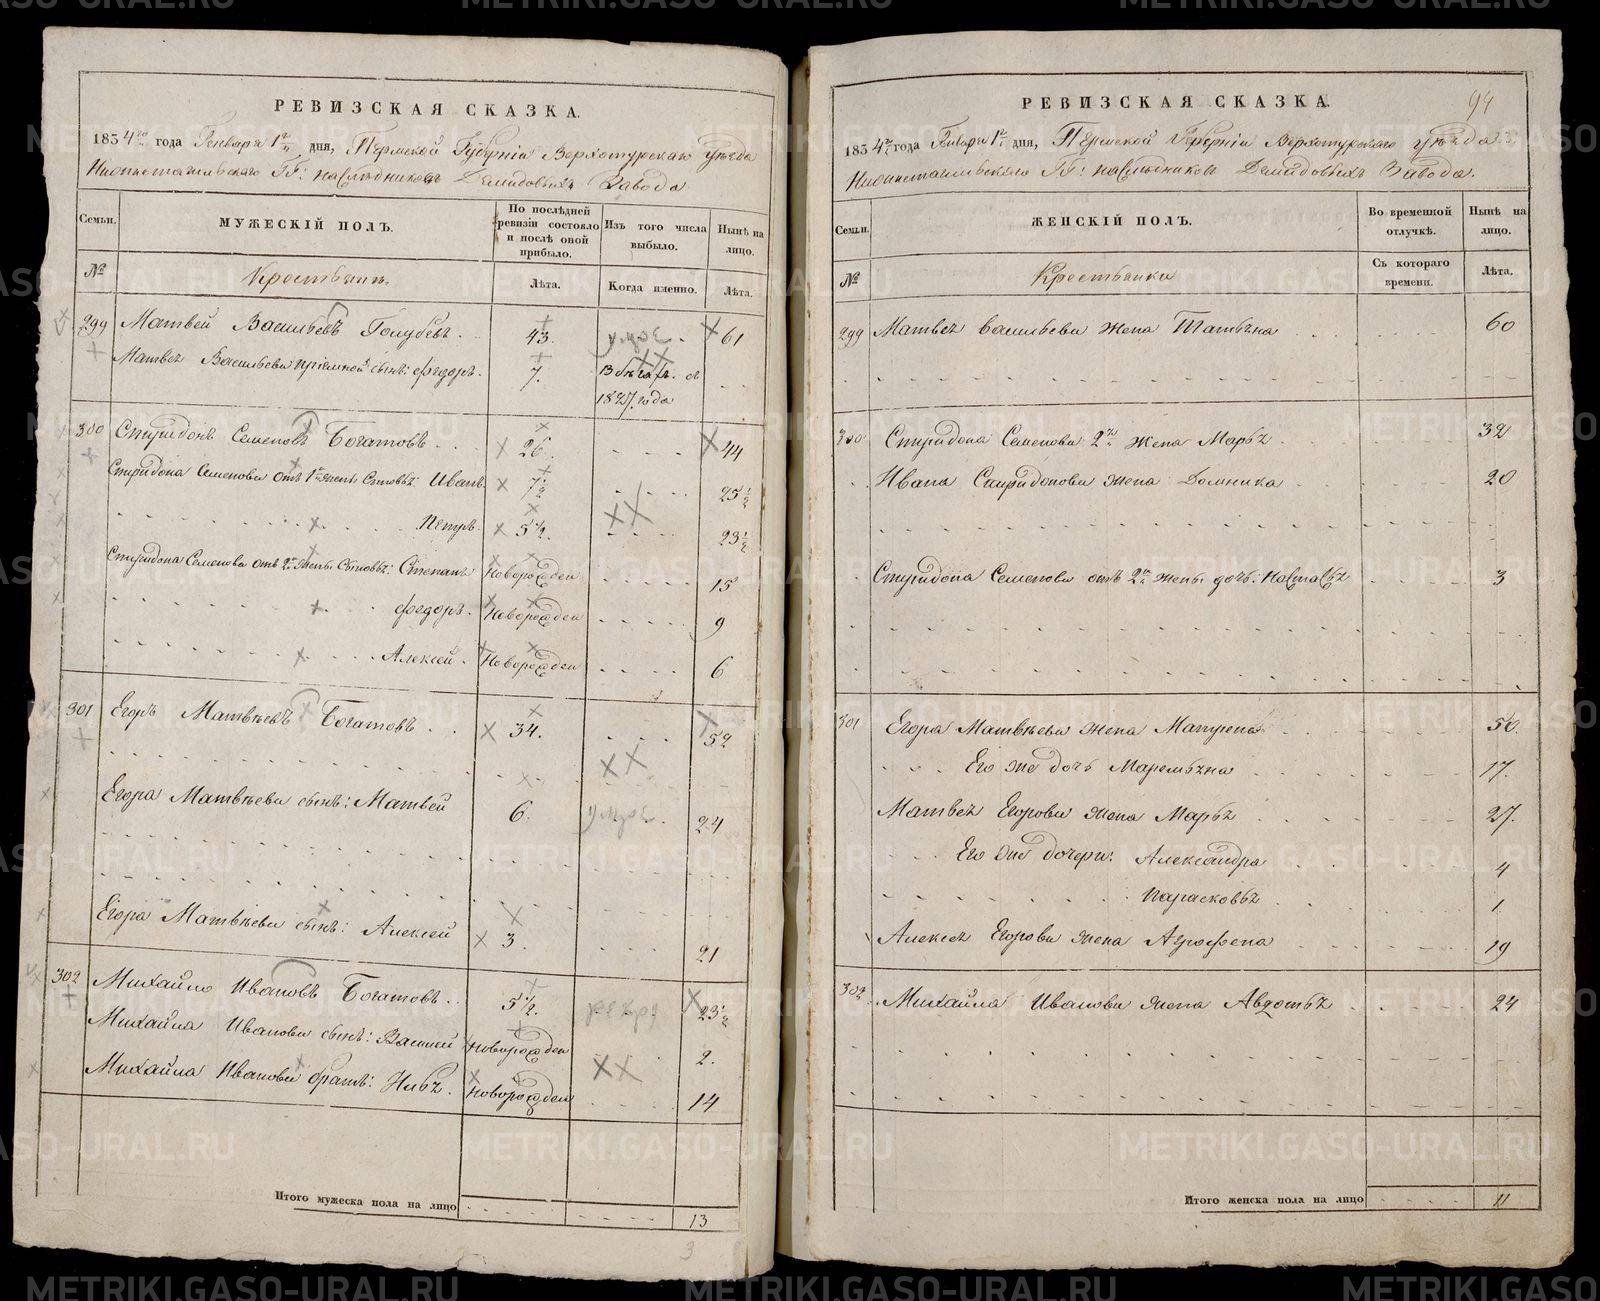 РЕВИЗСКАЯ СКАЗКА.
1834го года Генваря 1го дня, Пермской Губерніи Верхотурскаго уѣзда
Нижнетагильскаго ГГ: наслѣдниковъ Демидовыхъ Завода
Семьи. МУЖЕСКІЙ ПОЛЪ. По послѣдней ревизіи состояло и послѣ оной прибыло. Изъ того числа выбыло. Нынѣ на лицо.
№ Крестьяне. Лѣта. Когда именно. Лѣта.
299 Матвей Васильевъ Голубевъ. 43. умре. 61
Матвея Васильева приемной сынъ: Федоръ. 7. В бѣгахъ съ
1827 года
300 Спиридонъ Семеновъ Богатовъ 26. 44
Спиридона Семенова отъ 1й жены Сыновья: Иванъ 7½ 25½
Петръ. 5½. 23½
Спиридона Семенова отъ 2й жены Сыновья: Степанъ Новорожден 15
Федоръ. Новорожден 9
Алексей. Новорожден 6
301 Егоръ Матвѣевъ Богатовъ 34. 52
Егора Матвѣева сынъ: Матвей 6. умре. 24
Егора Матвѣева сынъ: Алексей 3. 21
302 Михайло Ивановъ Богатовъ. 5½. рекру 23½
Михайла Иванова сынъ: Василей Новорожден 2.
Михайла Иванова братъ: Новорожден 14
Итого мужеска пола на лицо 13
3
РЕВИЗСКАЯ СКАЗКА.
94
1834го года Генваря 1го дня, Пермской Губерніи Верхотурскаго уѣзда
Нижнетагильскаго ГГ: наслѣдниковъ Демидовыхъ Завода.
Семьи. ЖЕНСКІЙ ПОЛЪ. Во временной отлучкѣ. Нынѣ на лицо.
№ Крестьянки Съ котораго времени. Лѣта.
299 Матвея Васильева жена Татьяна 60
300 Спиридона Семенова 2я жена Марья 32
Ивана Спиридонова жена Домника 20
Спиридона Семенова отъ 2й жены дочь: Настасья 3
301 Егора Матвѣева жена Матрена 50.
Его же дочь Маремьяна 17.
Матвея Егорова жена Марья 27.
Его же дочери: Александра 4
Парасковья 1
Алексея Егорова жена Аграфена 19
302. Михайла Иванова жена Авдотья 24
Итого женска пола на лицо 11
METRIKI.GASO-URAL.RU